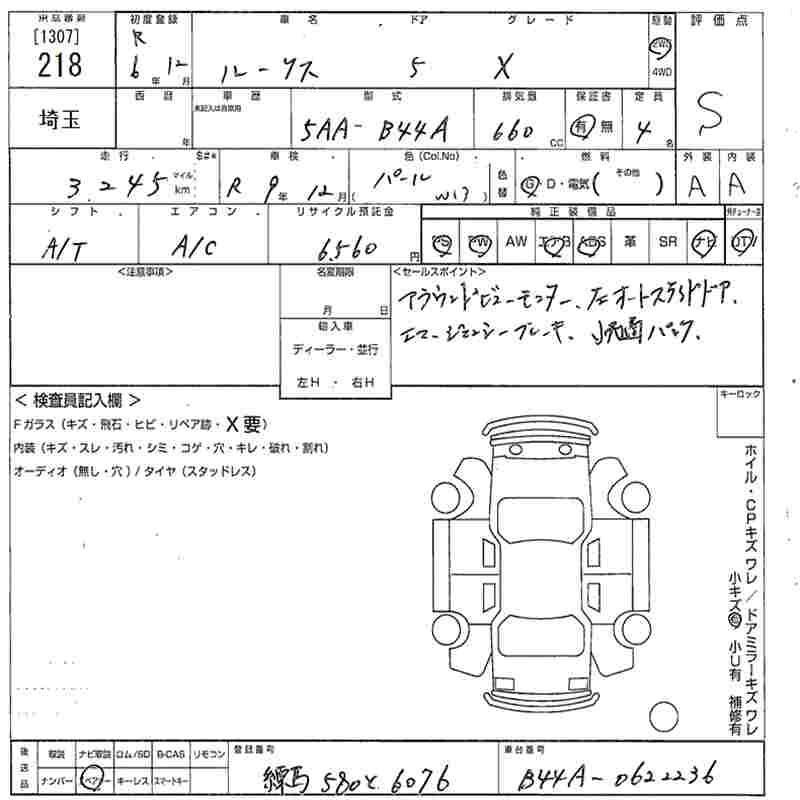 出品番号 初度登録 車名 ドア グレード 駆動 評価点
[1307] R 2WD
218 6年 12月 ルークス 5 X 4WD S
西暦 車歴 型式 排気量 保証書 定員
未記入は自家用
埼玉 年 5AA-B44A 660 CC 有 無 4 名
走行 S#* 車検 色(Col.No) 燃料 外装 内装
3,245 マイル km R 9年 12月 パール ( W13 ) 色替 G・D・電気( その他 ) A A
シフト エアコン リサイクル預託金 純正装備品
A/T A/C 6,560 円 PS PW AW エアB ABS 革 SR ナビ DTV
<注意事項> 名変期限 <セールスポイント>
月 日 アラウンドビューモニター、左オートスライドドア、
輸入車 エマージェンシーブレーキ、
ディーラー・並行
左H ・ 右H
< 検査員記入欄 > キーロック
Fガラス(キズ・飛石・ヒビ・リペア跡・X要)
内装(キズ・スレ・汚れ・シミ・コゲ・穴・キレ・破れ・割れ)
オーディオ(無し・穴)/タイヤ(スタッドレス)
ホイル・CPキズ ワレ / ドアミラーキズ ワレ
小キズ有 小U有 補修有
後送品 取説 ナビ取説 ロム/SD B-CAS リモコン 登録番号 車台番号
ナンバー スペアキー キーレス スマートキー 練馬 580 と 6076 B44A-0622236